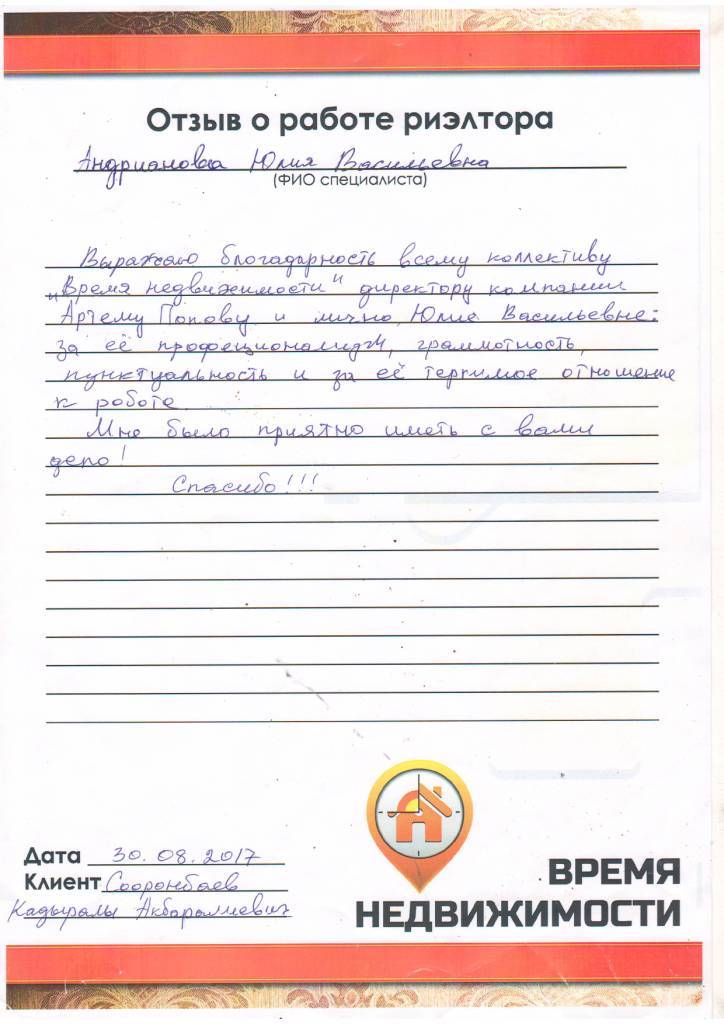 Отзыв о работе риэлтора
Андрианова Юлия Васильевна
(ФИО специалиста)
Выражаю благодарность всему коллективу
"Время недвижимости" директору компании
Артему Попову и лично Юлие Васильевне:
за её профеционализм, грамотность,
пунктуальность и за её терпимое отношение
к работе.
Мне было приятно иметь с вами
дело!
Спасибо!!!
Дата 30.08.2017
Клиент Сооронбаев
Кадыралы Акбаралиевич
ВРЕМЯ
НЕДВИЖИМОСТИ